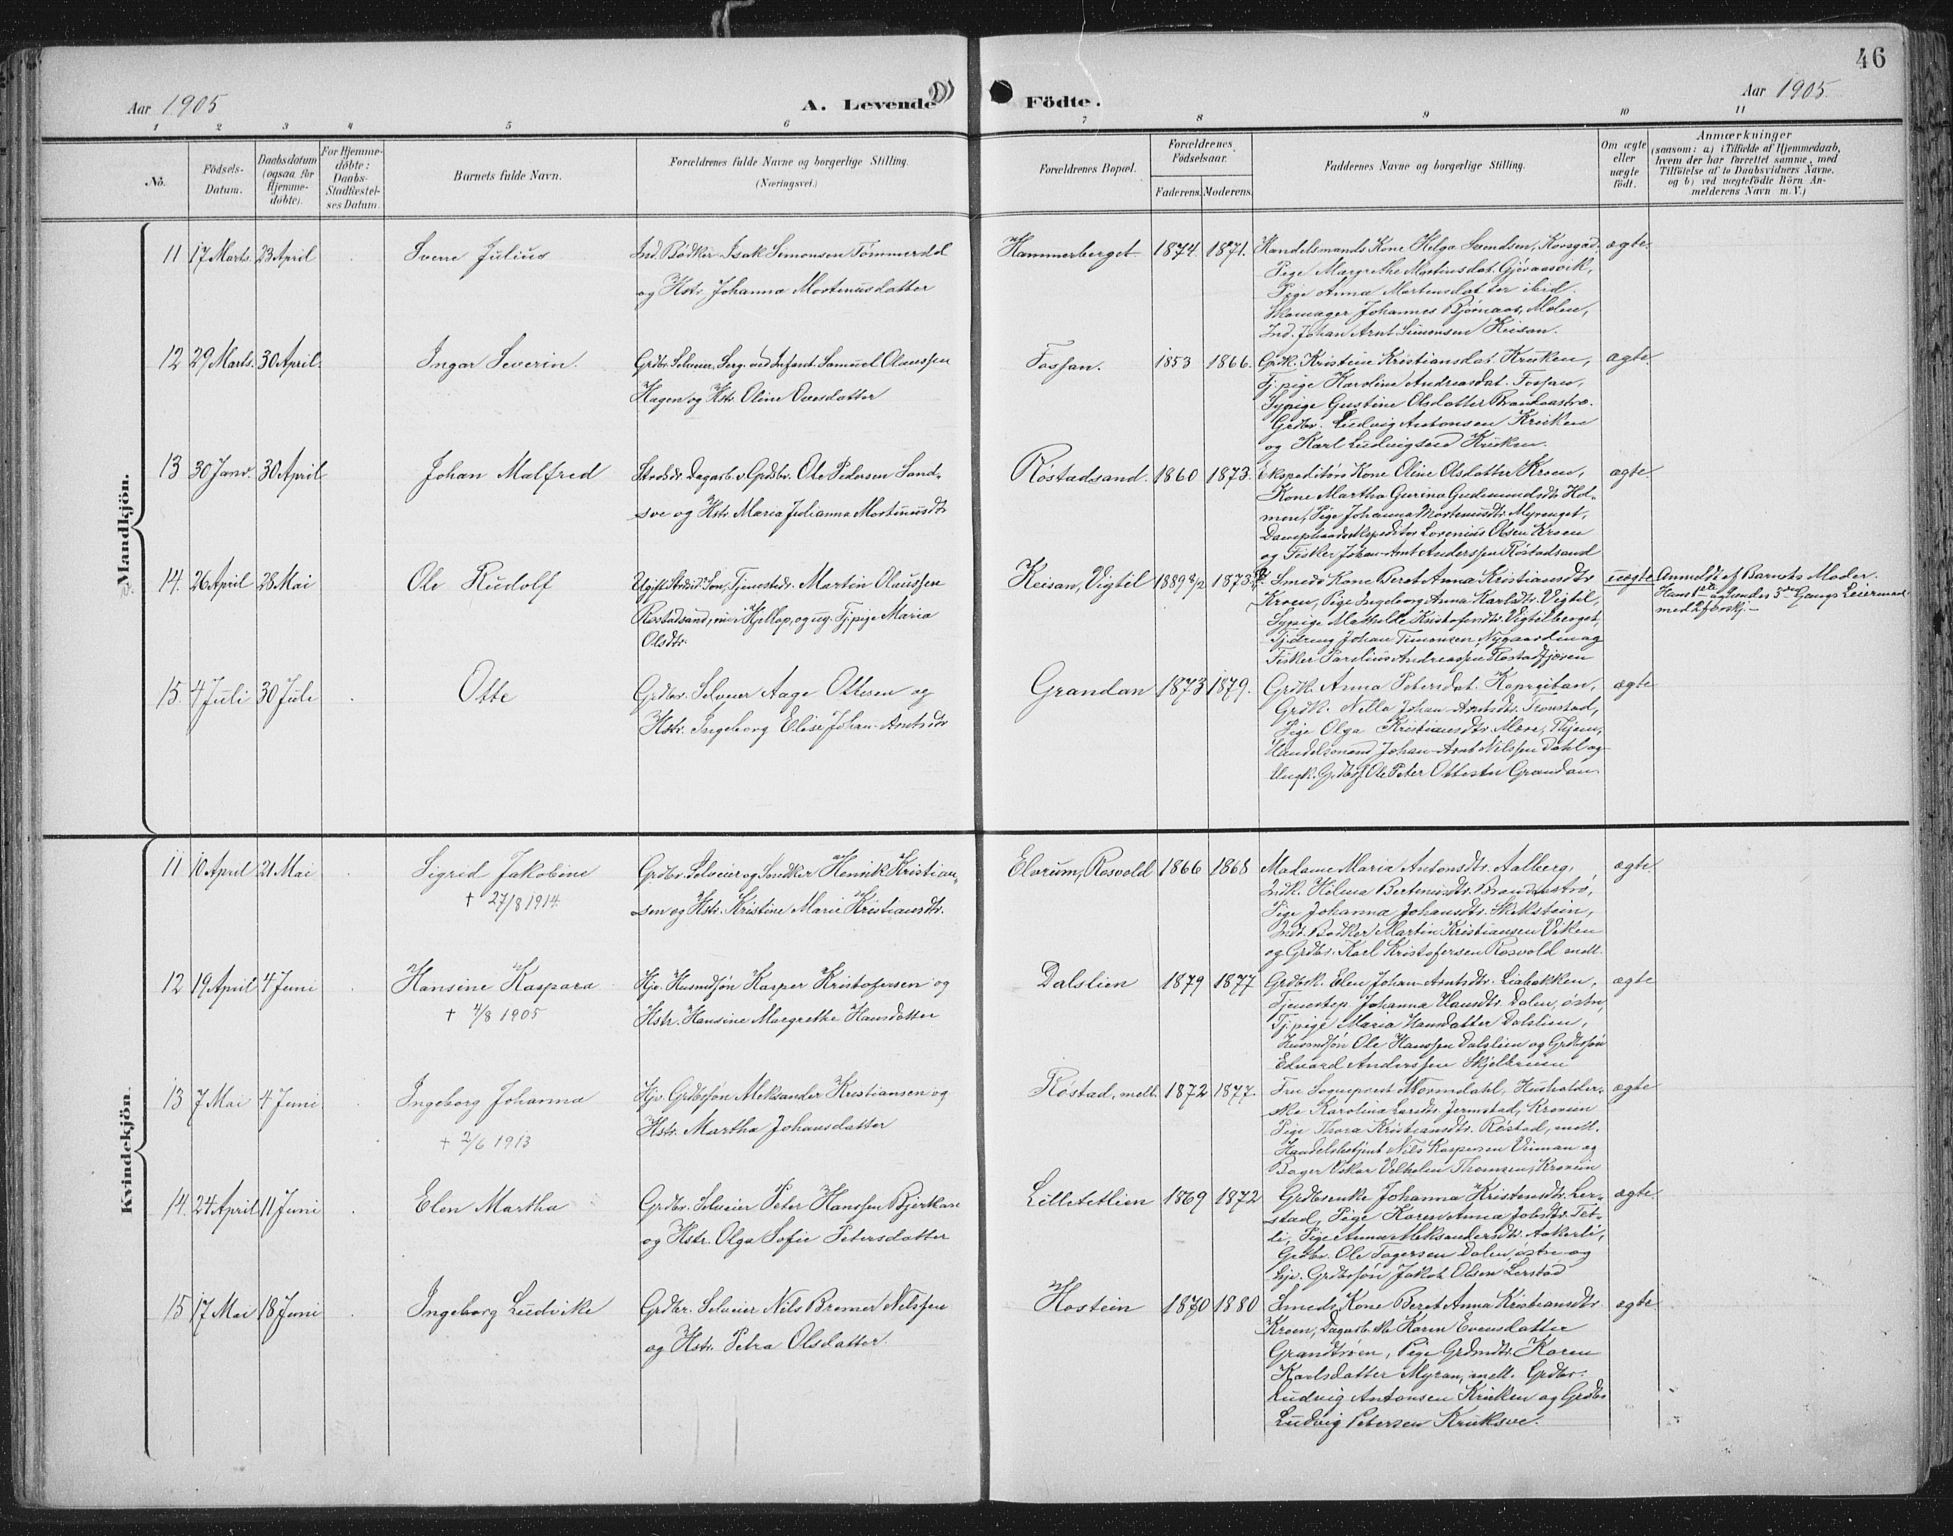 46
Aar 1905
A. Levende Födte.
Aar 1905.
1 2 3 4 5 6 7 8 9 10 11
No.
Födsels-
Datum.
Daabsdatum
(ogsaa for
Hjemme-
döbte).
For Hjemme-
döbte:
Daabs-
Stadfæstel-
ses Datum.
Barnets fulde Navn.
Forældrenes fulde Navne og borgerlige Stilling.
(Næringsvei.)
Forældrenes Bopæl.
Forældrenes
Födselsaar.
Faderens. Moderens.
Faddernes Navne og borgerlige Stilling.
Om ægte
eller
uægte
født.
Anmærkninger
(saasom: a) i Tilfælde af Hjemmedaab,
hvem der har forrettet samme, med
Tilföielse af to Daabsvidners Navne,
og b) ved uægtefödte Börn An-
melderens Navn m. V.)
Mandkjön.
11 17 Marts. 23 April
Sverre Julius
Ind. Bødker Isak Simonsen Tømmerdal
og Hstr. Johanna Mortinusdatter
Hammerberget 1874. 1871.
Handelsmands Kone Helga Svendsen, Korsgad.
Pige Margrethe Mortinusdat. Gjøraasvik,
Pige Anna Martensdatter ibid.
Skomager Johannes Bjørnaas, Molen,
Ind. Johan Arnt Simonsen Keisan.
ægte
12 29 Marts. 30 April.
Ingar Severin.
Grdbr. Selveier, Serg. ved Infant. Samuel Olaussen
Hagen og Hstr. Oline Ovesdatter
Fossan. 1853 1866.
Grdk. Kristine Kristiansdat. Kruken,
Tj. pige Karoline Andreasdat. Fossan,
Sypige Gustine Olsdatter Brandaastrø.
Grdbr. Ludvig Antonsen Kruken
og Karl Ludvigsen Kruken.
ægte
13 30 Janv. 30 April
Johan Malfred
Strandsdr. Dagarb. v. Grdbr. Ole Pedersen Sand-
sve og Hstr. Maria Julianna Mortinusdtr
Røstadsand. 1860 1873.
Ekspeditørs Kone Oline Olsdatter Kroen,
Kone Martha Gurina Gudmundsdtr. Hol-
men, Pige Johanna Mortenusdtr. Myrenget,
Dampskibsekspeditør Lorenius Olsen Kroen
og Fisker Johan-Arnt Anderssen Røstadsand
ægte
14. 26 April 28 Mai
Ole Rudolf
Ugift Strands. Søn, Tjenestedr. Martin Olaussen
Røstadsand, nu i Hjellop, og ug. Tj. pige Maria
Olsdtr.
Keisan, Vigtil 1889 2/2 1873
Smeds Kone Beret Anna Kristiansdtr
Kroen, Pige Ingeborg Anna Karlsdtr. Vigtil,
Sypige Mathilde Kristofersdtr. Vigtelberget,
Tj. dreng Johan Timonsen Nygaarden og
Fisker Parelius Andreassen Røstadfjæren
uægte
Anmeldt af Barnets Moder.
Hans 1ste og hendes 3die Gangs Leiermaal
med Eforskj.
15. 4 Juli 30 Jule
Otte
Grdbr. Selveier Aage Ottesen og
Hstr. Ingeborg Elise Johan-Arntsdtr
Grandan 1873 1879.
Grdk. Anna Petersdat. Kopreitan,
Grdk. Nella Johan-Arntsdtr. Tronstad,
Pige Olga Kristiansdtr. Mære, Thjem,
Handelsmand Johan-Arnt Nilssen Dahl og
Ungk. Grdbrs. Ole Peter Ottesen Grandan
ægte
Kvindekjön.
11 10 April 21 Mai
Sigrid Jakobine
+ 27/8 1914.
Grdbr. Selveier og Smdker Henrik Kristian-
sen og Hstr. Kristine Marie Kristiansdtr.
Elvrum, Rosvold 1866 1868
Madame Maria Antonsdtr. Aalberg,
Indk. Helma Bertinusdtr. Brandaastrø,
Pige Johanna Johansdtr. Skekstein,
Ind. Bødker Martin Kristiansen Viken
og Grdbr. Karl Kristofersen Rosvold mell.
ægte
12 19 April 4 Juni
Hansine Kaspara
+ 4/8 1905
Hjv. Husmdsøn Kasper Kristofersen og
Hstr. Hansine Margrethe Hansdatter
Dalslien 1879 1877
Grdbk. Elen Johan-Arntsdtr. Liabakken,
Tjenestep. Johanna Hansdtr. Dalen, østre,
Tj. pige Maria Hansdatter Dalslien,
Husmdsøn Ole Hanssen Dalslien og Grdbrsøn
Edvard Anderssen Skjelbrein
ægte
13 7 Mai 4 Juni
Ingeborg Johanna
+ 2/6 1913
Hjv. Grdbrsøn Aleksander Kristiansen og
Hstr. Martha Johansdatter
Røstad, mell. 1872 1877.
Fru Sogneprest Mormdahl, Husholder-
ske Karolina Larsdtr. Jermstad, Kroven
Pige Thora Kristiansdtr. Røstad, mell.
Handelsbetjent Nils Kaspersen Vinnan og
Bager Oskar Vilhelm Thomsen, Kroven
ægte
14. 24 April 11 Juni
Elen Martha
Grdbr. Selveier Peter Hanssen Bjerkan
og Hstr. Olga Sofie Petersdatter
Lilletetlien 1869 1872
Grdbrenke Johanna Kristensdtr. Ler-
stad, Pige Karen Anna Jobsdtr. Tet-
li, Pige Anna Aleksandersdtr. Aakerli,
Grdbr. Ole Tagersen Dalen, østre og
Hjv. Grdbrsøn Jakob Olsen Lerstad
ægte
15 17 Mai 18 Juni
Ingeborg Ludvike
Grdbr. Selveier Nils Bremer Nilssen
og Hstr. Petra Olsdatter.
Hostein 1870 1880
Smeds Kone Beret Anna Kristiansdtr.
Kroen, Dagarb.ske Karen Evensdatter
Grandtrøen, Pige Grdmdtr. Karen
Karlsdatter Myran, mell. Grdbr.
Ludvig Antonsen Kruken og Grdbr
Ludvig Petersen Kruksve.
ægte